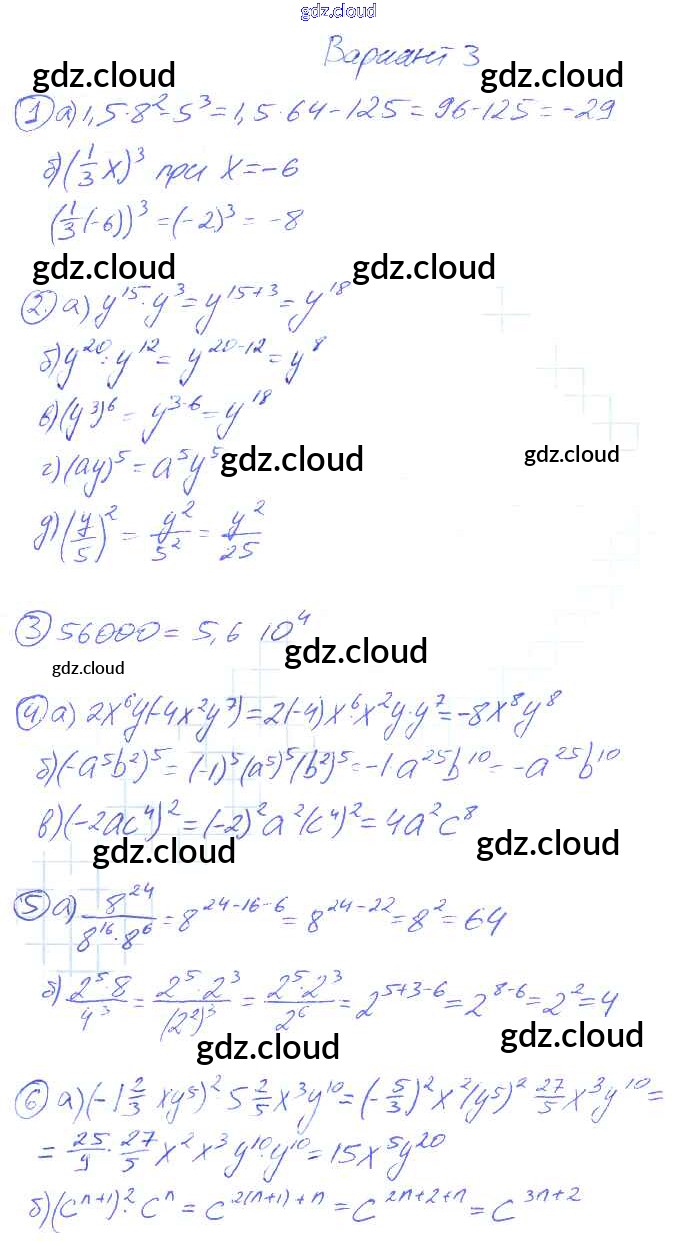 gdz.cloud
Вариант 3
gdz.cloud gdz.cloud
1 а) 1,5·8²-5³=1,5·64-125=96-125=-29
б) (1/3 x)³ при x=-6
(1/3(-6))³=(-2)³=-8
gdz.cloud gdz.cloud
2. а) y¹⁵·y³=y¹⁵⁺³=y¹⁸
б) y²⁰:y¹²=y²⁰⁻¹²=y⁸
в) (y³)⁶=y³·⁶=y¹⁸
г) (ay)⁵=a⁵y⁵ gdz.cloud gdz.cloud
д) (y/5)²=y²/5²=y²/25
3 56000=5,6 10⁴
gdz.cloud gdz.cloud
4. а) 2x⁶y(-4x²y⁷)=2(-4)x⁶·x²y·y⁷=-8x⁸y⁸
б) (-a⁵b²)⁵=(-1)⁵(a⁵)⁵(b²)⁵=-1a²⁵b¹⁰=-a²⁵b¹⁰
в) (-2ac⁴)²=(-2)²a²(c⁴)²=4a²c⁸
gdz.cloud gdz.cloud
5 а) 8²⁴/8¹⁶·8⁶=8²⁴⁻¹⁶⁻⁶=8²⁴⁻²²=8²=64
б) 2⁵·8/4³=2⁵·2³/(2²)³=2⁵·2³/2⁶=2⁵⁺³⁻⁶=2⁸⁻⁶=2²=4
gdz.cloud gdz.cloud
6 а) (-1 2/3 xy⁵)² 5 2/5 x³y¹⁰=(-5/3)²x²(y⁵)² 27/5 x³y¹⁰=
=25/9·27/5 x²x³y¹⁰y¹⁰=15x⁵y²⁰
gdz.cloud gdz.cloud
б) (cⁿ⁺¹)²·cⁿ=c²⁽ⁿ⁺¹⁾⁺ⁿ=c²ⁿ⁺²⁺ⁿ=c³ⁿ⁺²